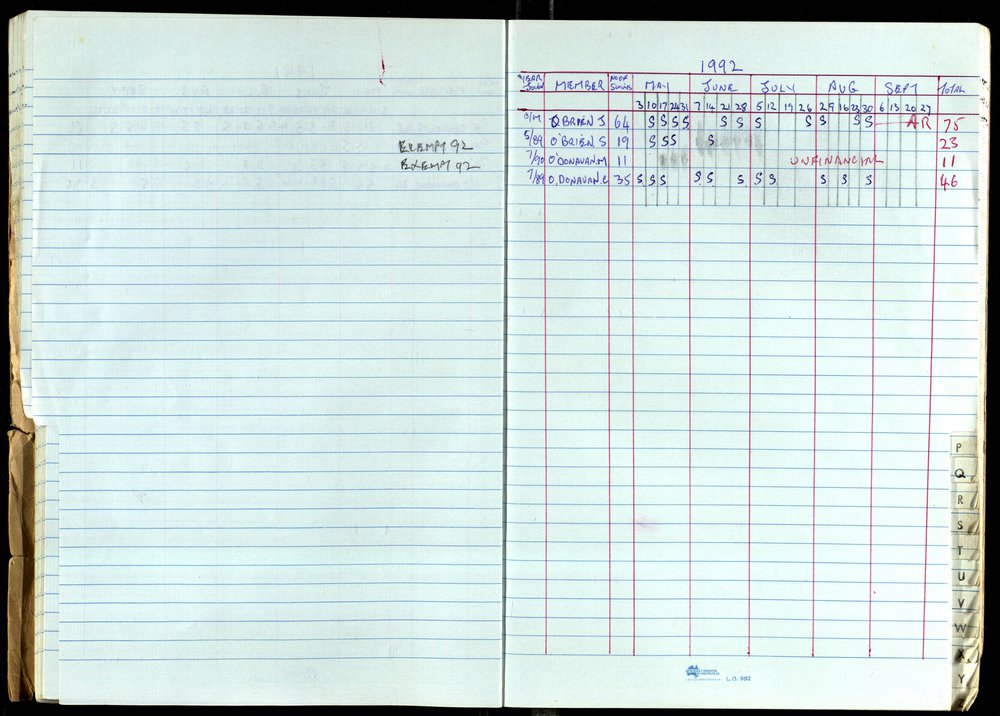 EXEMPT 92
EXEMPT 92
1992
YEAR JOINED MEMBER NO OF SWIMS MAY JUNE JULY AUG SEPT TOTAL
3 10 17 24 31 7 14 21 28 5 12 19 26 2 9 16 23 30 6 13 20 27
O'BRIEN J 64 S S S S S S S S S S S AR 75
5/89 O'BRIEN S 19 S S S S 23
7/90 O'DONAVAN.M 11 UNFINANCIAL 11
7/89 O.DONAVAN.C 35 S S S S S S S S S S S 46
L.O. 992
P
Q
R
S
T
U
V
W
X
Y
Z